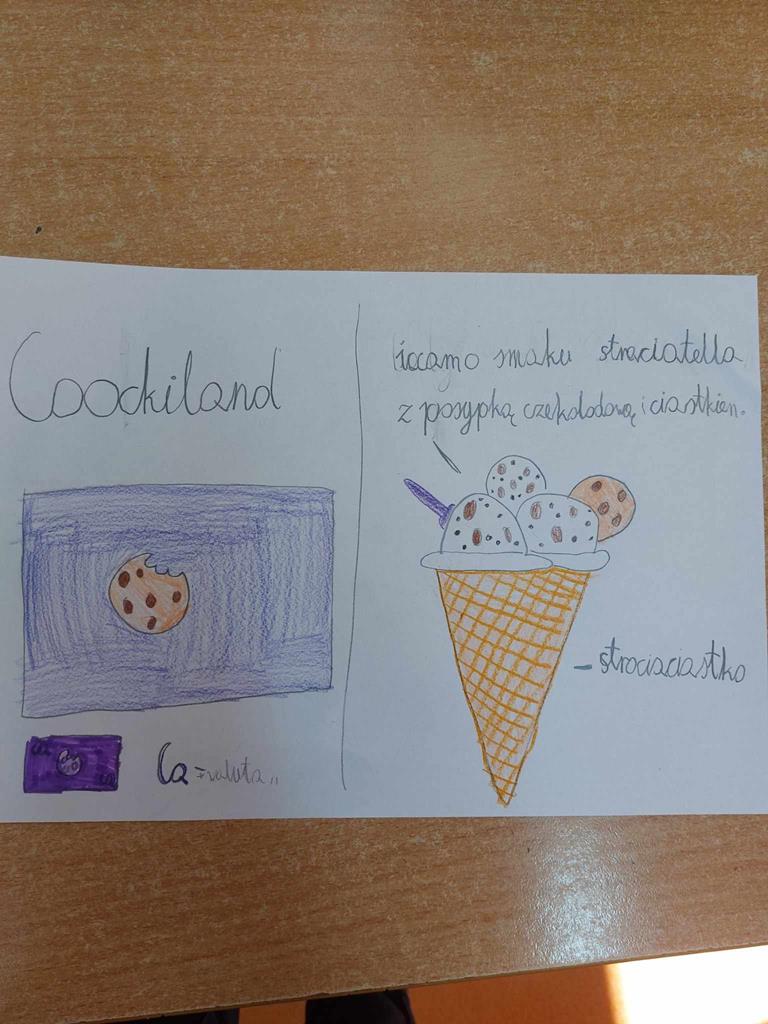 Coockiland
Ca =waluta
smaku straciatella
z posypką czekolodową i ciastkien.
- strociaciastko